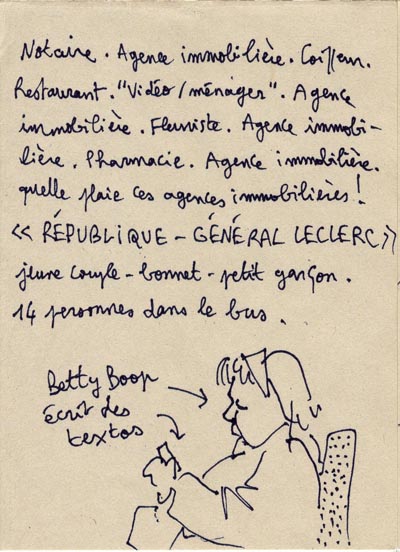 Notaire. Agence immobilière. Coiffeur.
Restaurant. "Vidéo/ménager". Agence
immobilière. Fleuriste. Agence immobi-
lière. Pharmacie. Agence immobilière.
quelle plaie ces agences immobilières !
« RÉPUBLIQUE - GÉNÉRAL LECLERC »
jeune couple - bonnet - petit garçon.
14 personnes dans le bus.
Betty Boop
écrit des
textos